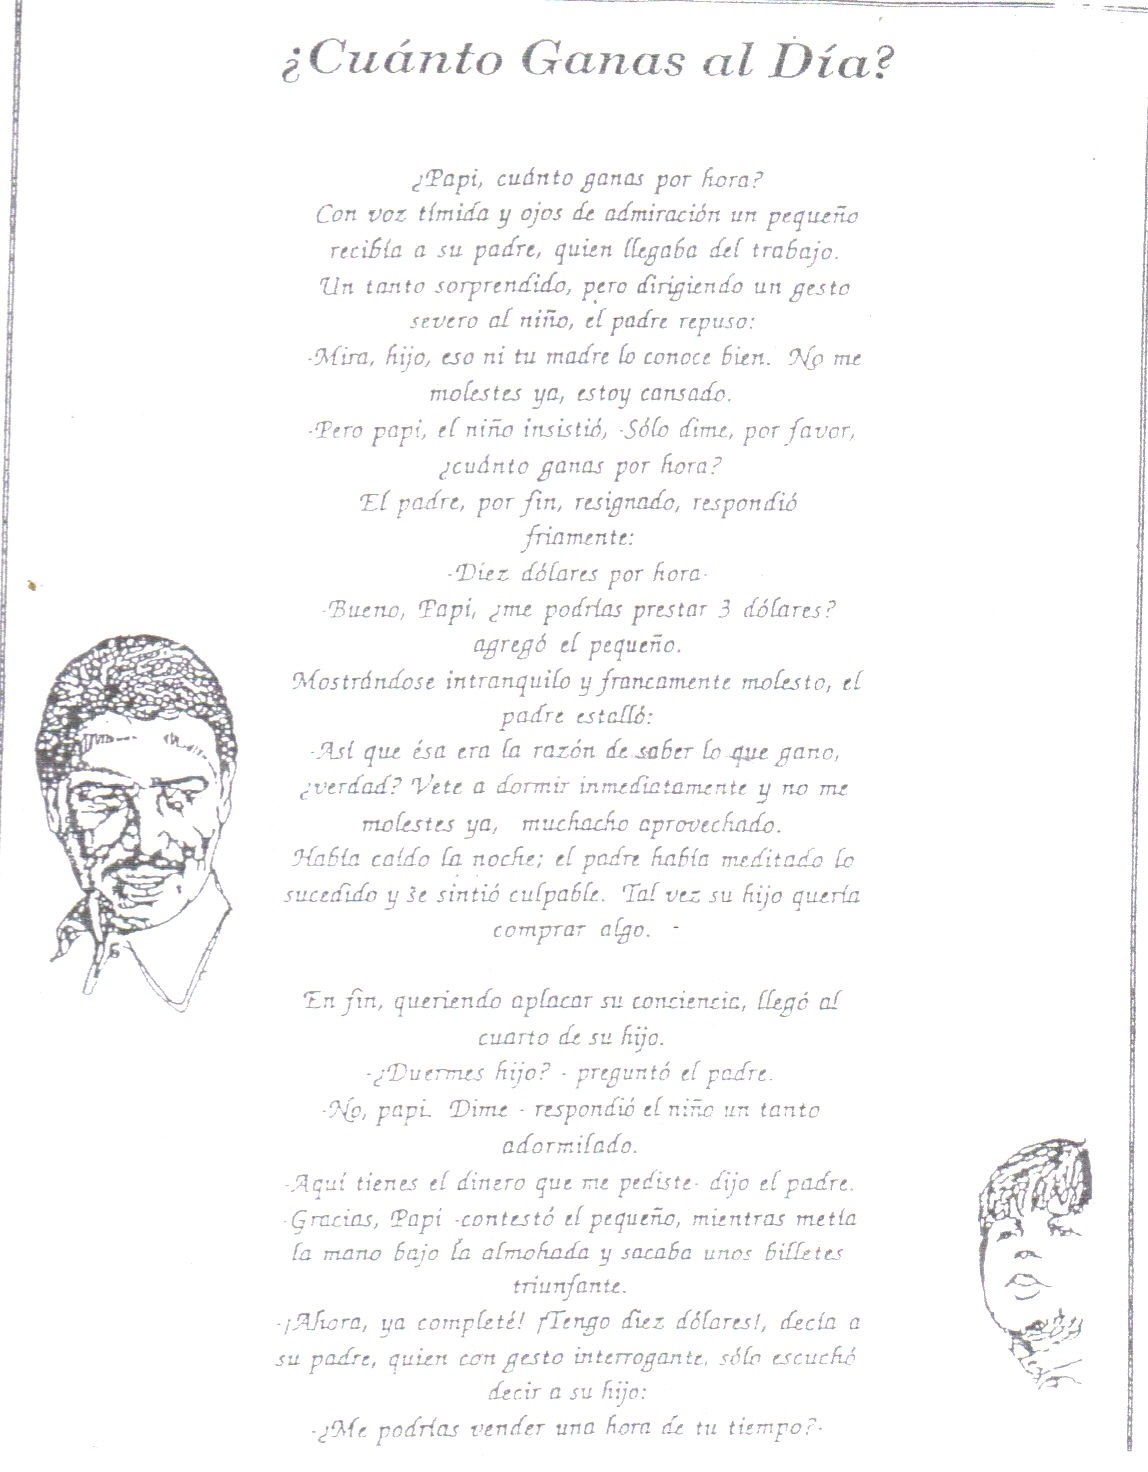 ¿Cuánto Ganas al Día?
¿Papi, cuánto ganas por hora?
Con voz tímida y ojos de admiración un pequeño
recibía a su padre, quien llegaba del trabajo.
Un tanto sorprendido, pero dirigiendo un gesto
severo al niño, el padre repuso:
-Mira, hijo, eso ni tu madre lo conoce bien. No me
molestes ya, estoy cansado.
-Pero papi, el niño insistió, -Sólo dime, por favor,
¿cuánto ganas por hora?
El padre, por fin, resignado, respondió
friamente:
-Diez dólares por hora-
-Bueno, Papi, ¿me podrías prestar 3 dólares?
agregó el pequeño.
Mostrándose intranquilo y francamente molesto, el
padre estalló:
-Así que ésa era la razón de saber lo que gano,
¿verdad? Vete a dormir inmediatamente y no me
molestes ya, muchacho aprovechado.
Había caído la noche; el padre había meditado lo
sucedido y se sintió culpable. Tal vez su hijo quería
comprar algo. -
En fin, queriendo aplacar su conciencia, llegó al
cuarto de su hijo.
-¿Duermes hijo? - preguntó el padre.
-No, papi. Dime - respondió el niño un tanto
adormilado.
-Aquí tienes el dinero que me pediste- dijo el padre.
-Gracias, Papi -contestó el pequeño, mientras metía
la mano bajo la almohada y sacaba unos billetes
triunfante.
-¡Ahora, ya completé! ¡Tengo diez dólares!, decía a
su padre, quien con gesto interrogante, sólo escuchó
decir a su hijo:
-¿Me podrías vender una hora de tu tiempo?-